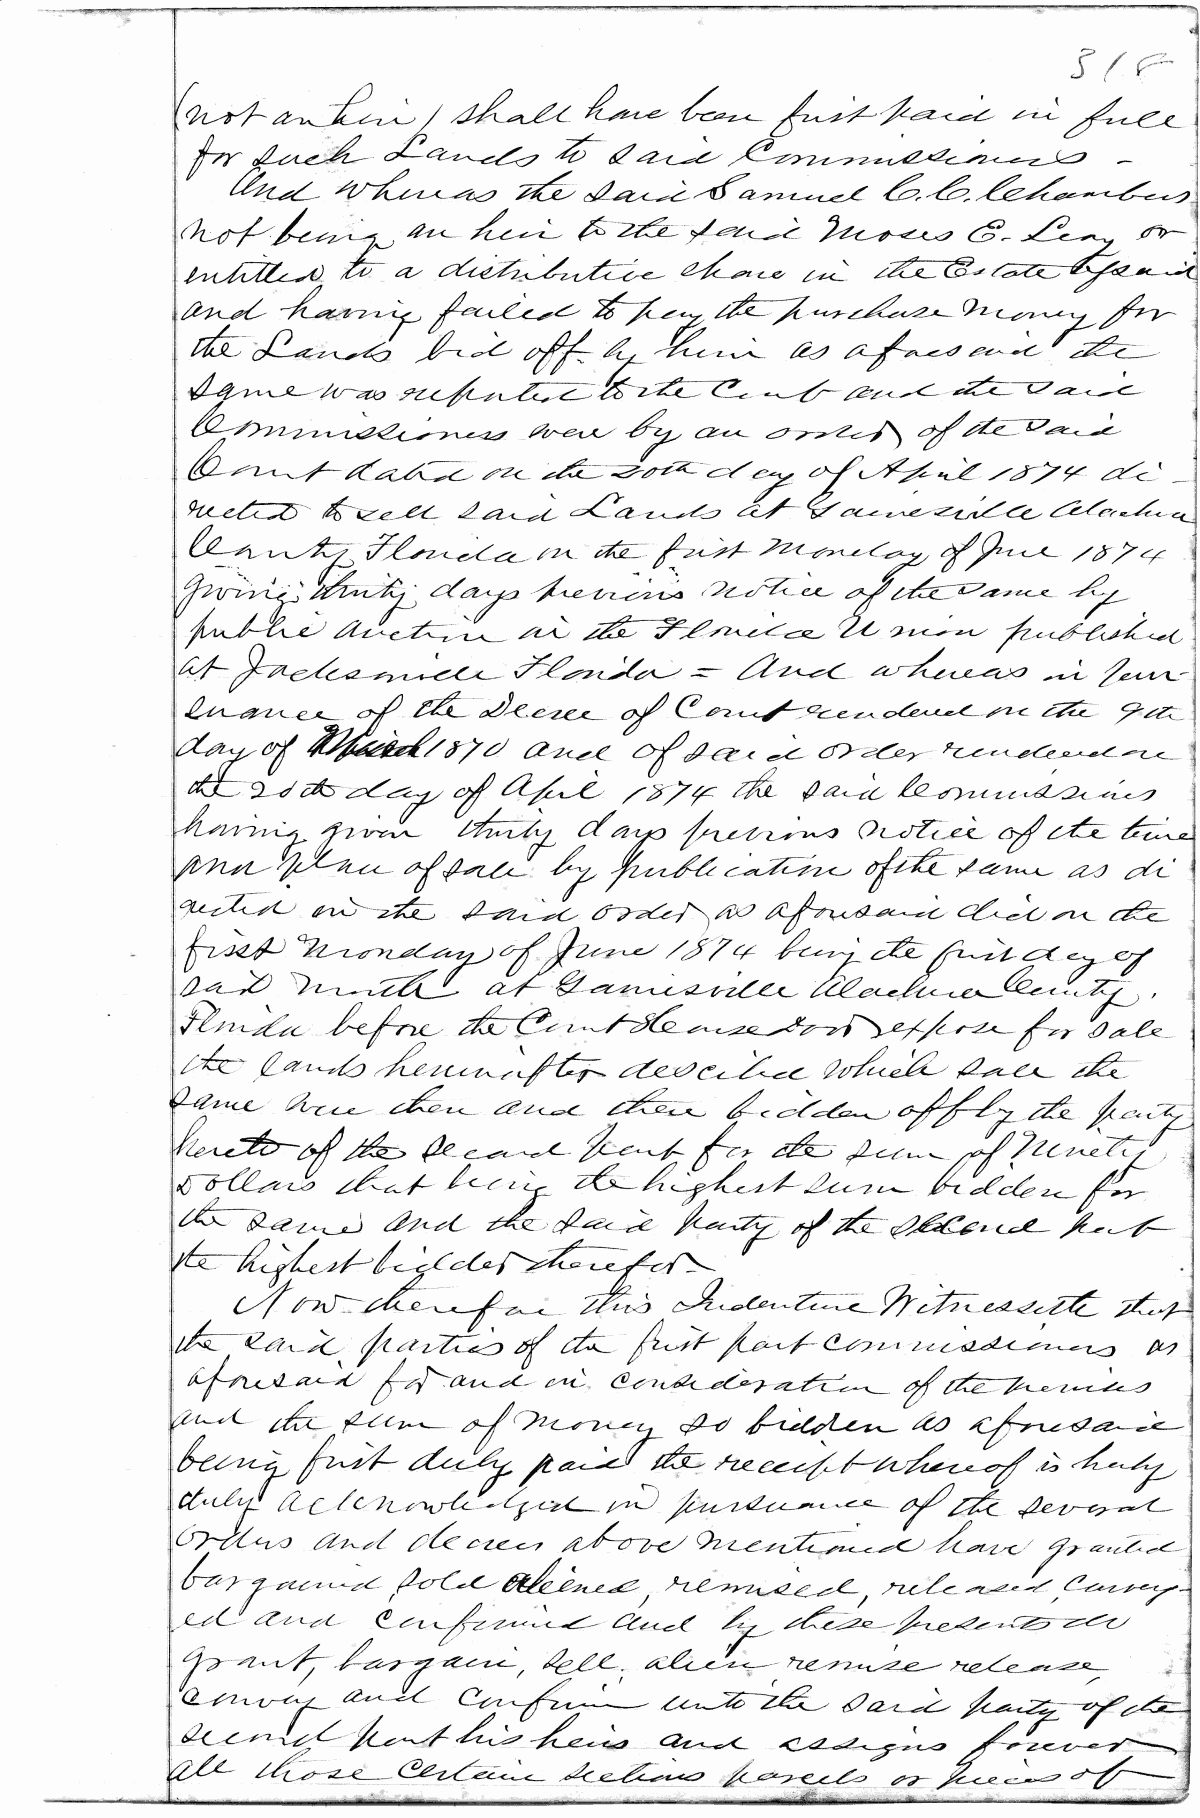 318
(not an heir) shall have been first paid in full
for such Lands to said Commissioners -
And whereas the said Samuel C. C. Chambers
not being an heir to the said Moses E. Levy or
entitled to a distributive share in the Estate afsaid
and having failed to pay the purchase money for
the Lands bid off by him as aforesaid the
same was reported to the Court and the said
Commissioners were by an order of the said
Court dated on the 20th day of April 1874 di-
rected to sell said Lands at Gainesville Alachua
County Florida on the first Monday of June 1874
giving thirty days previous notice of the same by
public auction in the Florida Union published
at Jacksonville Florida = And whereas in pur-
suance of the Decree of Court rendered on the 9th
day of March 1870 and of said order rendered on
the 20th day of April 1874 the said Commissioners
having given thirty days previous notice of the time
and place of sale by publication of the same as di
rected in the said order as aforesaid did on the
first Monday of June 1874 being the first day of
said month at Gainesville Alachua County.
Florida before the Court House door expose for sale
the lands hereinafter described which sale the
same were then and there bidden off by the party
hereto of the second part for the sum of Ninety
Dollars that being the highest sum bidden for
the same and the said party of the second part
the highest bidder therefor-
Now therefore this Indenture Witnesseth that
the said parties of the first part commissioners as
aforesaid for and in consideration of the premises
and the sum of money so bidden as aforesaid
being first duly paid the receipt whereof is hereby
duly acknowledged in pursuance of the several
orders and decrees above mentioned have granted
bargained, sold aliened, remised, released, convey-
ed and confirmed and by these presents do
grant, bargain, sell, alien remise release,
convey and confirm unto the said party of the
second part his heirs and assigns forever
all those certain sections parcels or pieces of